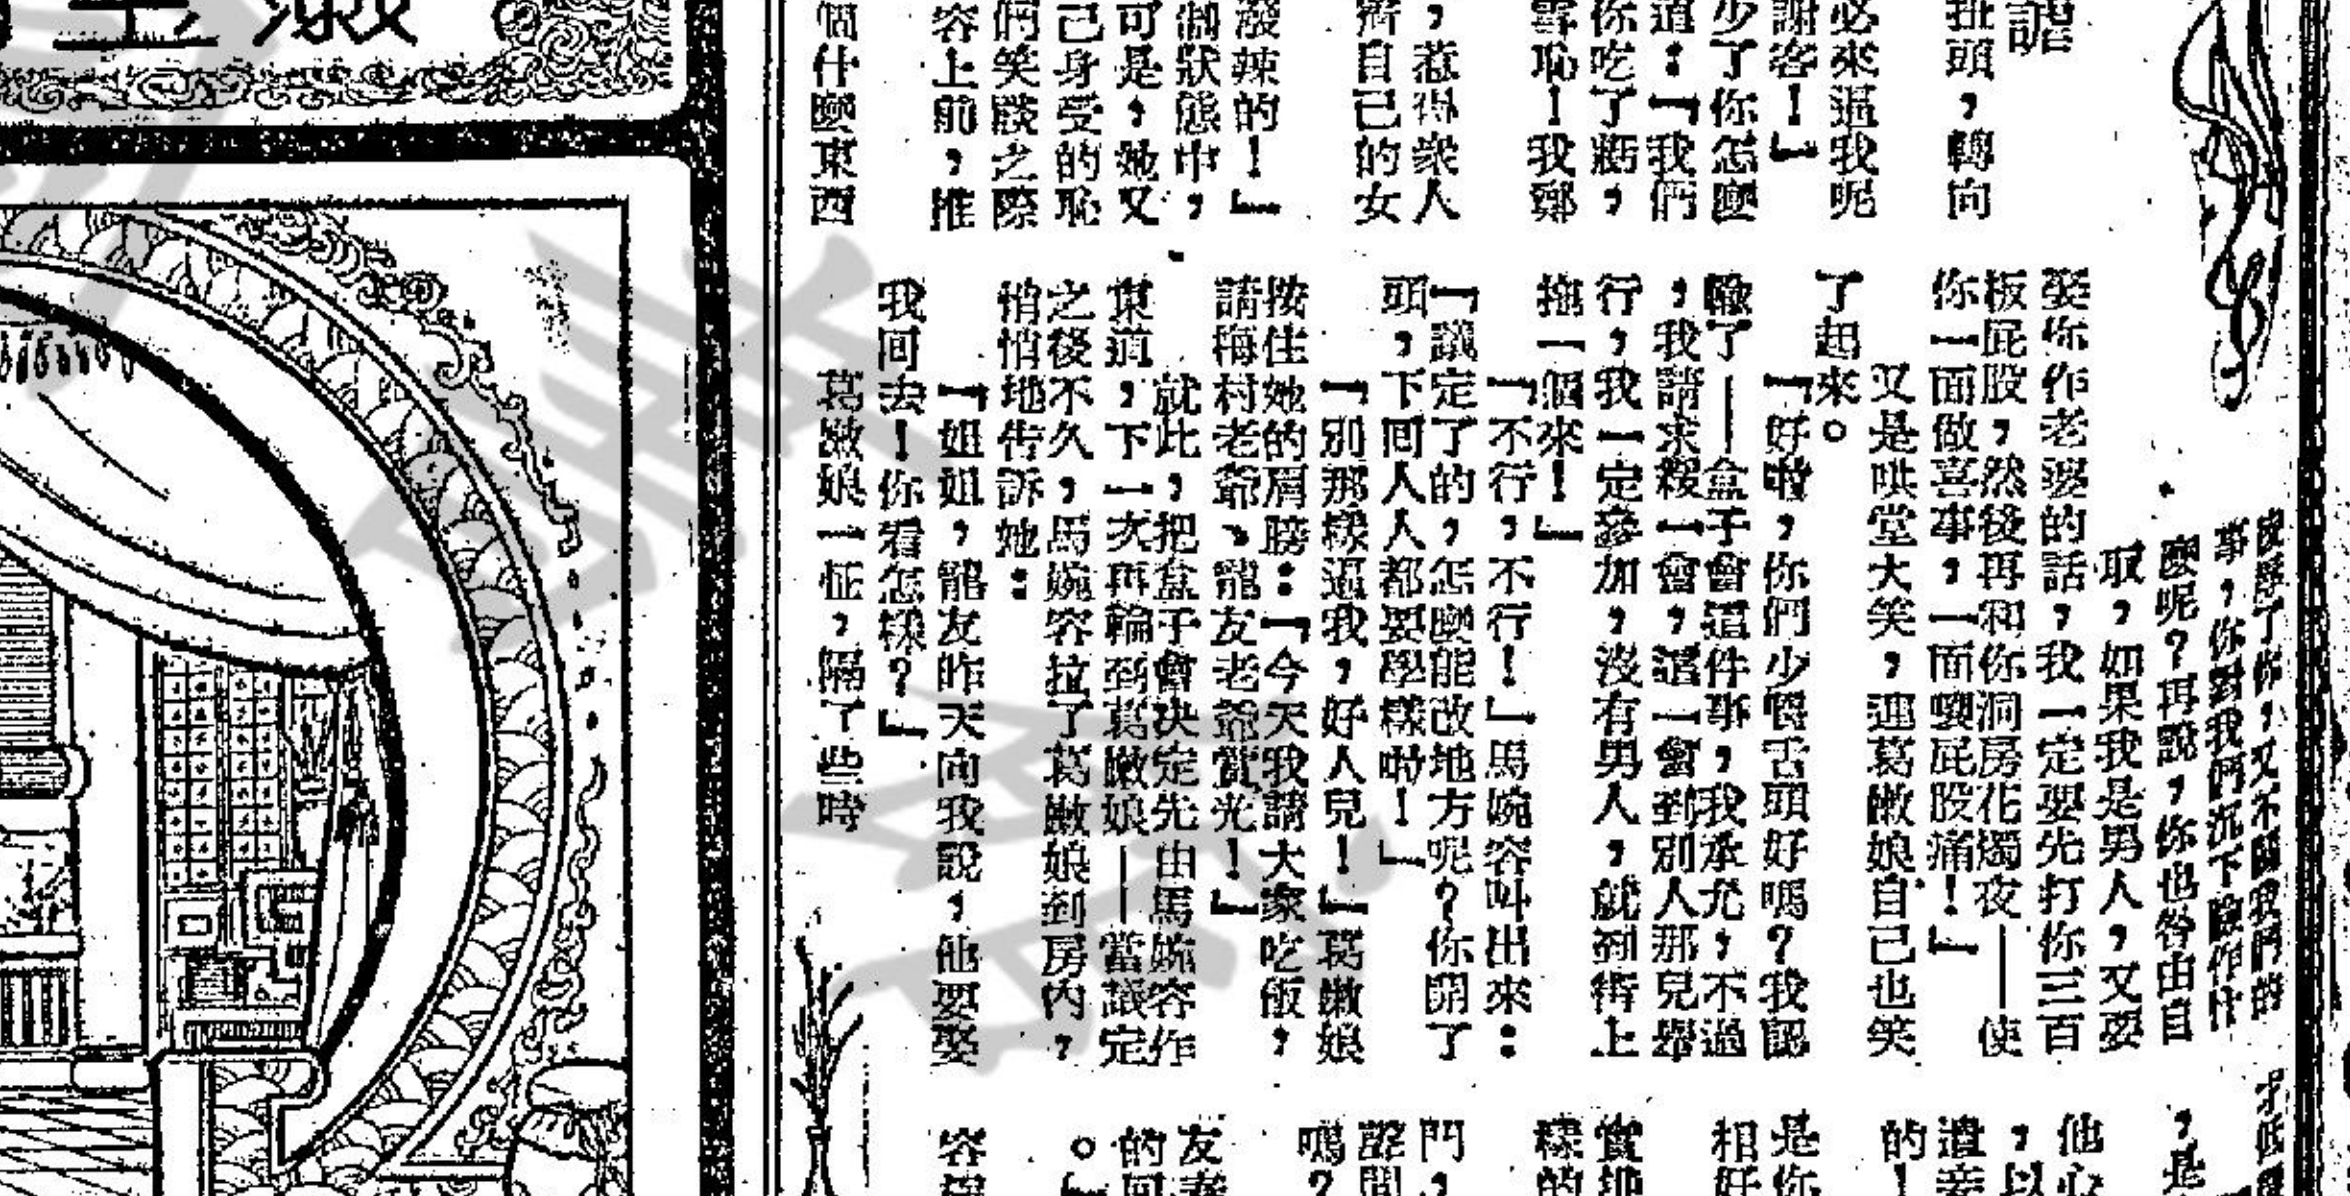 扯頭，轉向
必來逼我呢
謝客！」
少了你怎麼
道：「我們
你吃了虧，
雪恥！我鄭
，惹得衆人
自己的女
潑辣的！」
個狀態中，
可是，她又
己身受的恥
們笑謔之際
容上前，推
個什麼東西
事，你對我們沉下臉作什
麼呢？再說，你也咎由自
取，如果我是男人，又要
娶你作老婆的話，我一定要先打你三百
板屁股，然後再和你洞房花燭夜——使
你一面做喜事，一面喊屁股痛！」
又是哄堂大笑，連葛嫩娘自己也笑
了起來。
「好啦，你們少嚼舌頭好嗎？我認
輸了——盒子會這件事，我承允，不過
，我請求緩一會，這一會到別人那兒舉
行，我一定參加，沒有男人，就到街上
拖一個來！」
「不行，不行！」馬婉容叫出來：
「議定了的，怎麼能改地方呢？你開了
頭，下回人人都要學樣啦！」
「別那樣逼我，好人兒！」葛嫩娘
按住她的肩膀：「今天我請大家吃飯，
請梅村老爺、龍友老爺賞光！」
就此，把盒子會決定先由馬婉容作
東道，下一次再輪到葛嫩娘——當議定
之後不久，馬婉容拉了葛嫩娘到房內，
悄悄地告訴她：
「姐姐，龍友昨天向我說，他要娶
我回去！你看怎樣？」
葛嫩娘一怔，隔了些時
他心
，以
遣妾
的！
是你
相好
樣的
門，
嗎？
友
的回
。」
容